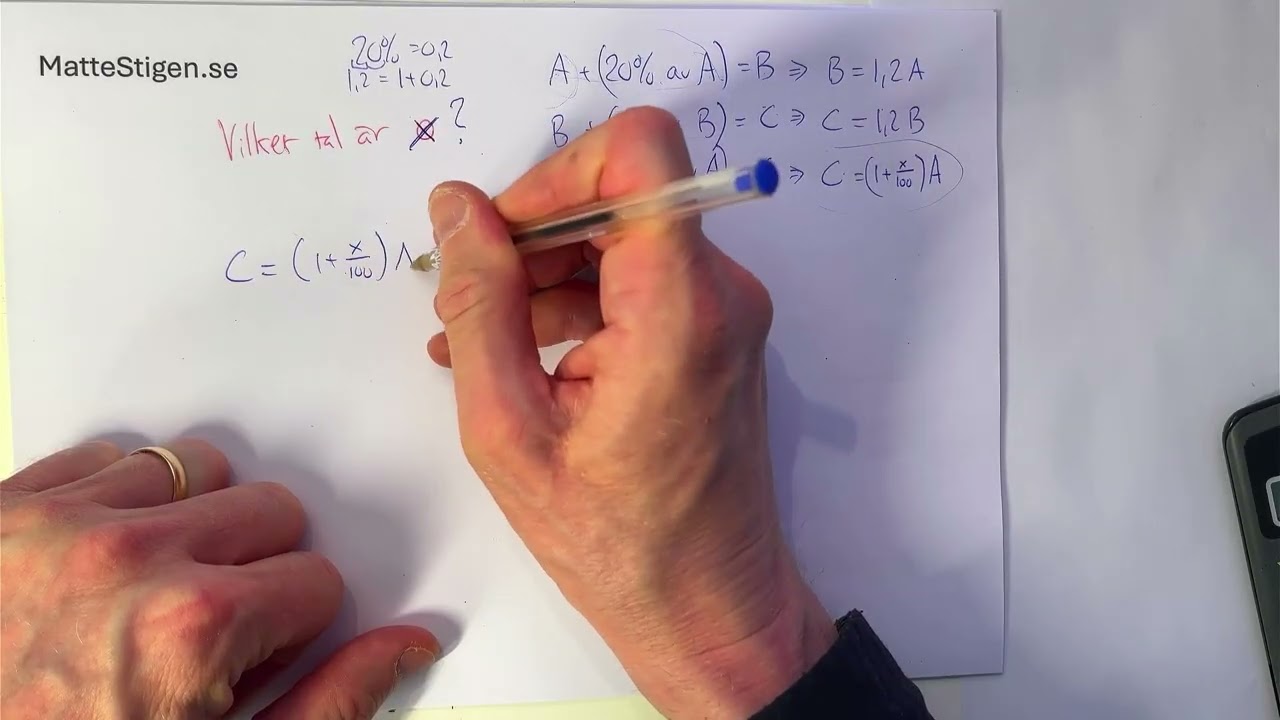 MatteStigen.se
20% = 0,2
1,2 = 1 + 0,2
Vilket tal är x ?
A + (20% av A) = B ⇒ B = 1,2 A
B + ( B) = C ⇒ C = 1,2 B
A) ⇒ C = (1 + x/100) A
C = (1 + x/100) A